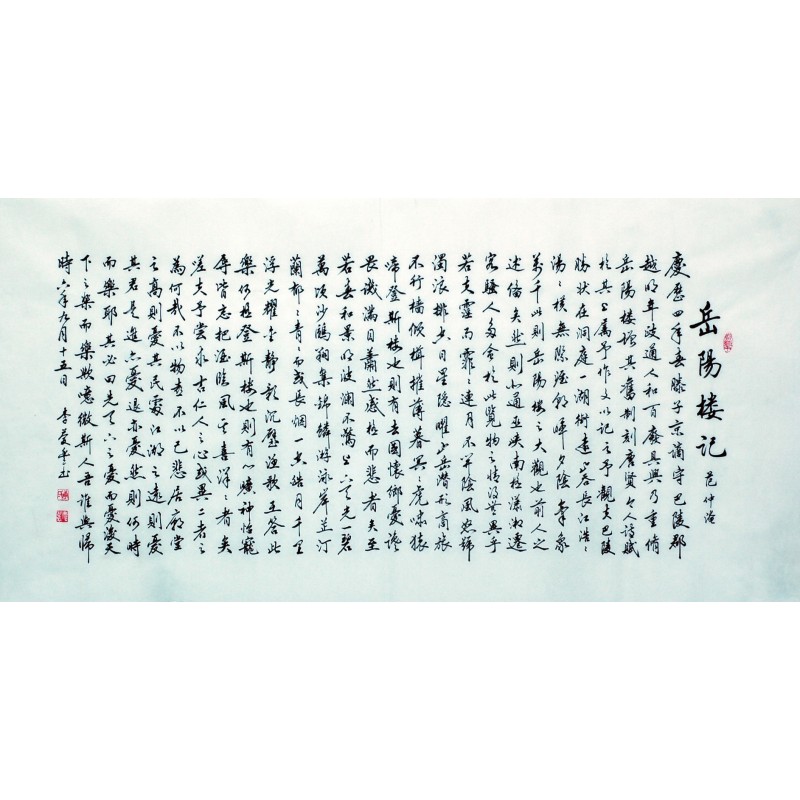 岳陽楼記
范仲淹
慶歷四年春滕子京謫守巴陵郡
越明年政通人和百廢具興乃重脩
岳陽楼增其舊制刻唐賢今人詩賦
於其上属予作文以記之予觀夫巴陵
勝狀在洞庭一湖銜遠山吞長江浩〻
湯〻橫無際涯朝暉夕陰氣象
萬千此則岳陽楼之大觀也前人之
述備矣然則北通巫峽南極瀟湘遷
客騷人多會於此覽物之情得無異乎
若夫霪雨霏〻連月不開陰風怒號
濁浪排空日星隱曜山岳潛形商旅
不行檣傾楫摧薄暮冥〻虎嘯猿
啼登斯楼也則有去國懷鄉憂讒
畏譏滿目蕭然感極而悲者矣至
若春和景明波瀾不驚上下天光一碧
萬頃沙鷗翔集錦鱗游泳岸芷汀
蘭郁〻青〻而或長烟一空皓月千里
浮光耀金静影沉璧漁歌互答此
樂何極登斯楼也則有心曠神怡寵
辱皆忘把酒臨風其喜洋〻者矣
嗟夫予嘗求古仁人之心或異二者之
為何哉不以物喜不以己悲居廟堂
之高則憂其民處江湖之遠則憂
其君是進亦憂退亦憂然則何時
而樂耶其必曰先天下之憂而憂後天
下之樂而樂歟噫微斯人吾誰與歸
時六年九月十五日 李愛平